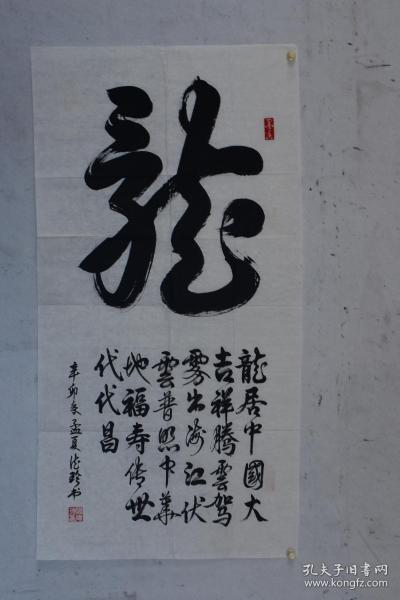 龍
龍居中國大
吉祥騰雲駕
雾出海江伏
雲普照中華
地福寿传世
代代昌
辛卯年孟夏
书
孔夫子旧书网
www.kongfz.com